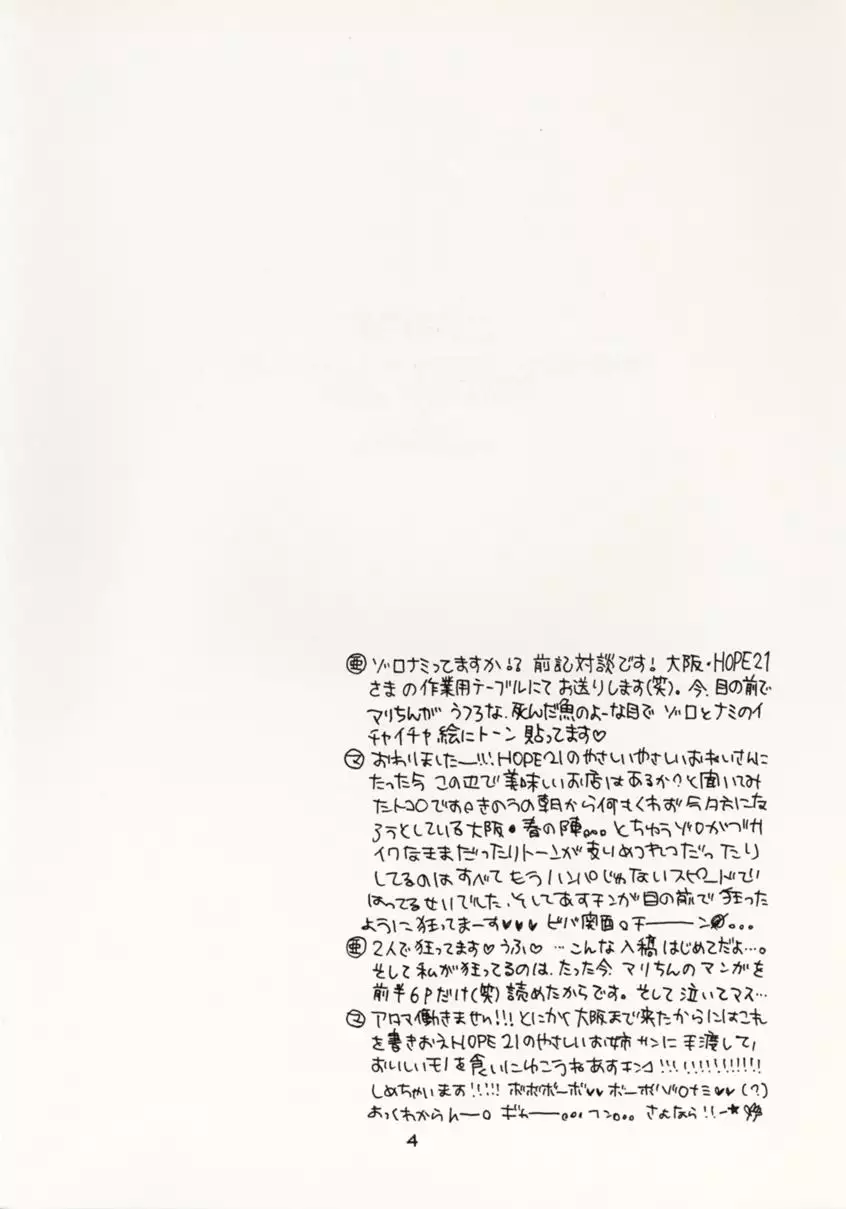 亜 ゾロナミってますか!? 前記対談です! 大阪・HOPE21
さまの作業用テーブルにてお送りします(笑)。今、目の前で
マリちんが うつろな、死んだ魚のよーな目で ゾロとナミのイ
チャイチャ絵にトーン 貼ってます♡
マ おわりましたー!!! HOPE21のやさしいやさしいおねいさんに
たった今 この辺で美味しいお店はあるか?と聞いてみ
たトコロです。きのうの朝から何もくわず 今夕方にな
ろうとしている大阪・春の陣。。。とちゅうゾロがハゲカ
イワなままだったりトーンが
してるのはすべて もうハンパじゃないスピードで
はってるせいでした、そしてあすチンが目の前で 狂った
ように狂ってまーす♥♥♥ ビバ関西。チーーーン。。。
亜 2人で狂ってます♡うふ♡ …こんな入稿はじめてだよ…。
そして私が狂ってるのは、たった今 マリちんのマンガを
前半6Pだけ(笑)読めたからです。そして泣いてマス…
マ アロマ働きません!!! とにかく大阪まで来たからにはこれ
を書きおえHOPE21のやさしいお姉サンに手渡して、
おいしいモノを食いにゆこうねあすチン!!!!!!!!!!!!
しめちゃいます!!!!! ボボボーボ♥♥ボーボ ゾロナミ♥♥(?)
よくわからんー。ギャーー。。。フン。。。さよなら!!ー★
4